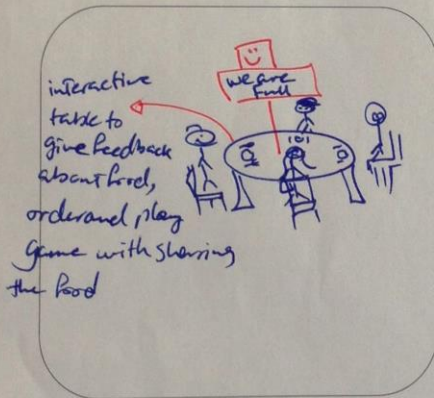 interactive
table to
give feedback
about food,
order and play
game with sharing
the food
we are
full